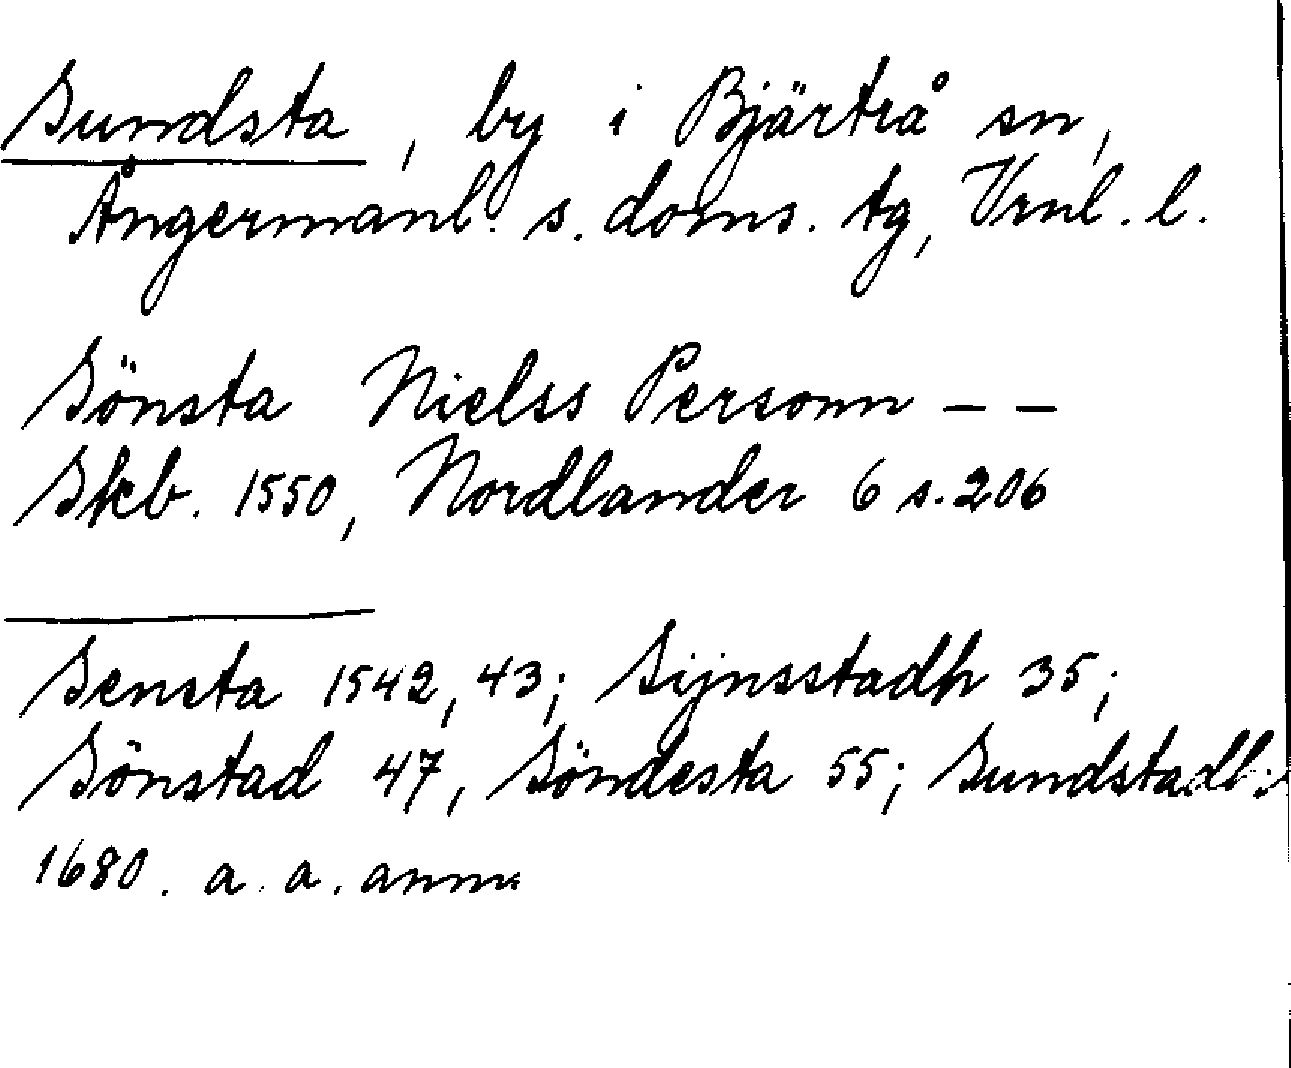 Sundsta, by i Bjärtrå sn,
Ångermanl. s. doms. tg, Vrnl. l.
Sönsta Nielss Personn – –
Skb. 1550, Nordlander 6 s. 206
Sensta 1542, 43; Sijnsstadh 35;
Sönstad 47, Söndesta 55; Sundstadh
1680. a. a. anm.